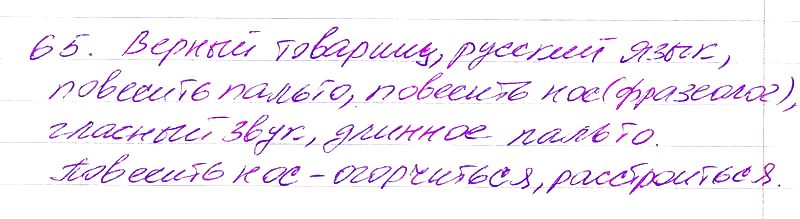 65. Верный товарищ, русский язык,
повесить пальто, повесить нос (фразеолог),
гласный звук, длинное пальто.
Повесить нос - огорчиться, расстроиться.